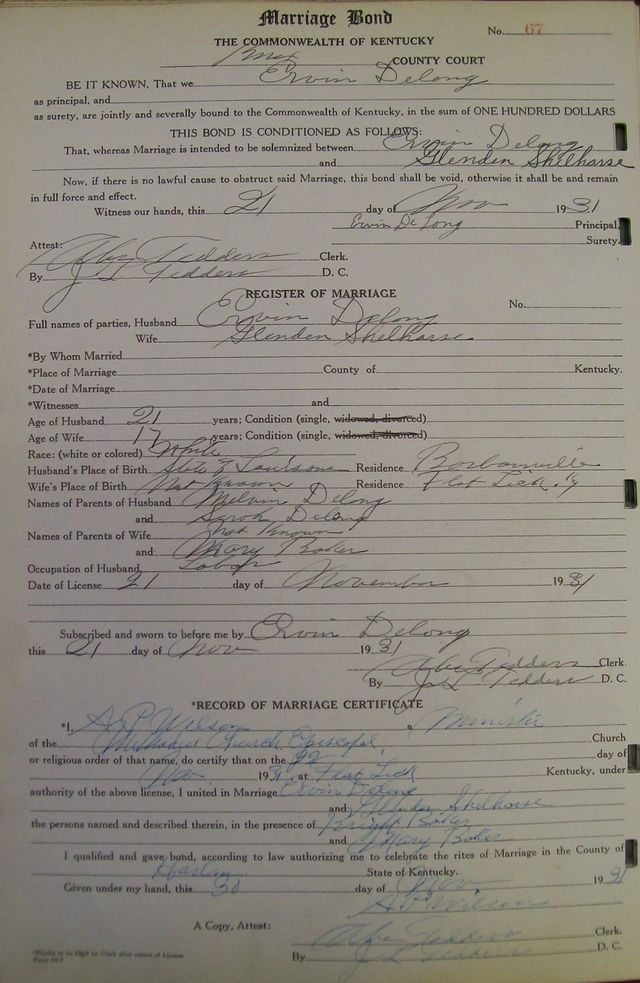 Marriage Bond
No. 67
THE COMMONWEALTH OF KENTUCKY
Knox COUNTY COURT
BE IT KNOWN, That we Ervin Delong
as principal, and
as surety, are jointly and severally bound to the Commonwealth of Kentucky, in the sum of ONE HUNDRED DOLLARS
THIS BOND IS CONDITIONED AS FOLLOWS:
That, whereas Marriage is intended to be solemnized between Ervin Delong
and Glenden Shelharse
Now, if there is no lawful cause to obstruct said Marriage, this bond shall be void, otherwise it shall be and remain
in full force and effect.
Witness our hands, this 21 day of Nov 1931
Ervin De Long Principal,
Surety.
Attest:
Abe Tedders Clerk.
By J L Tedders D. C.
REGISTER OF MARRIAGE
No.
Full names of parties, Husband Ervin Delong
Wife Glenden Shelharse
*By Whom Married
*Place of Marriage County of Kentucky.
*Date of Marriage
*Witnesses and
Age of Husband 21 years; Condition (single, widowed, divorced)
Age of Wife 17 years; Condition (single, widowed, divorced)
Race: (white or colored) White
Husband's Place of Birth State of Residence Borbourville
Wife's Place of Birth Not Known Residence Flat Lick, Ky
Names of Parents of Husband Melvin Delong
and Sarah Delong
Names of Parents of Wife Not Known
and Mary Baker
Occupation of Husband Labor
Date of License 21 day of November 1931
Subscribed and sworn to before me by Ervin Delong
this 21 day of Nov 1931
Abe Tedders Clerk.
By J L Tedders D. C.
*RECORD OF MARRIAGE CERTIFICATE
*I, A. P. Wilson a Minister
of the Methodist Church Episcopal, Church
or religious order of that name, do certify that on the 22 day of
Nov 1931, at Flat Lick Kentucky, under
authority of the above license, I united in Marriage Ervin Delong
and Glenden Shelhorse
the persons named and described therein, in the presence of Baker
and Mary Baker
I qualified and gave bond, according to law authorizing me to celebrate the rites of Marriage in the County of
Harlan State of Kentucky.
Given under my hand, this 30 day of Nov 1931
A P Wilson
A Copy, Attest: Abe Tedders Clerk.
By J L Tedders D. C.